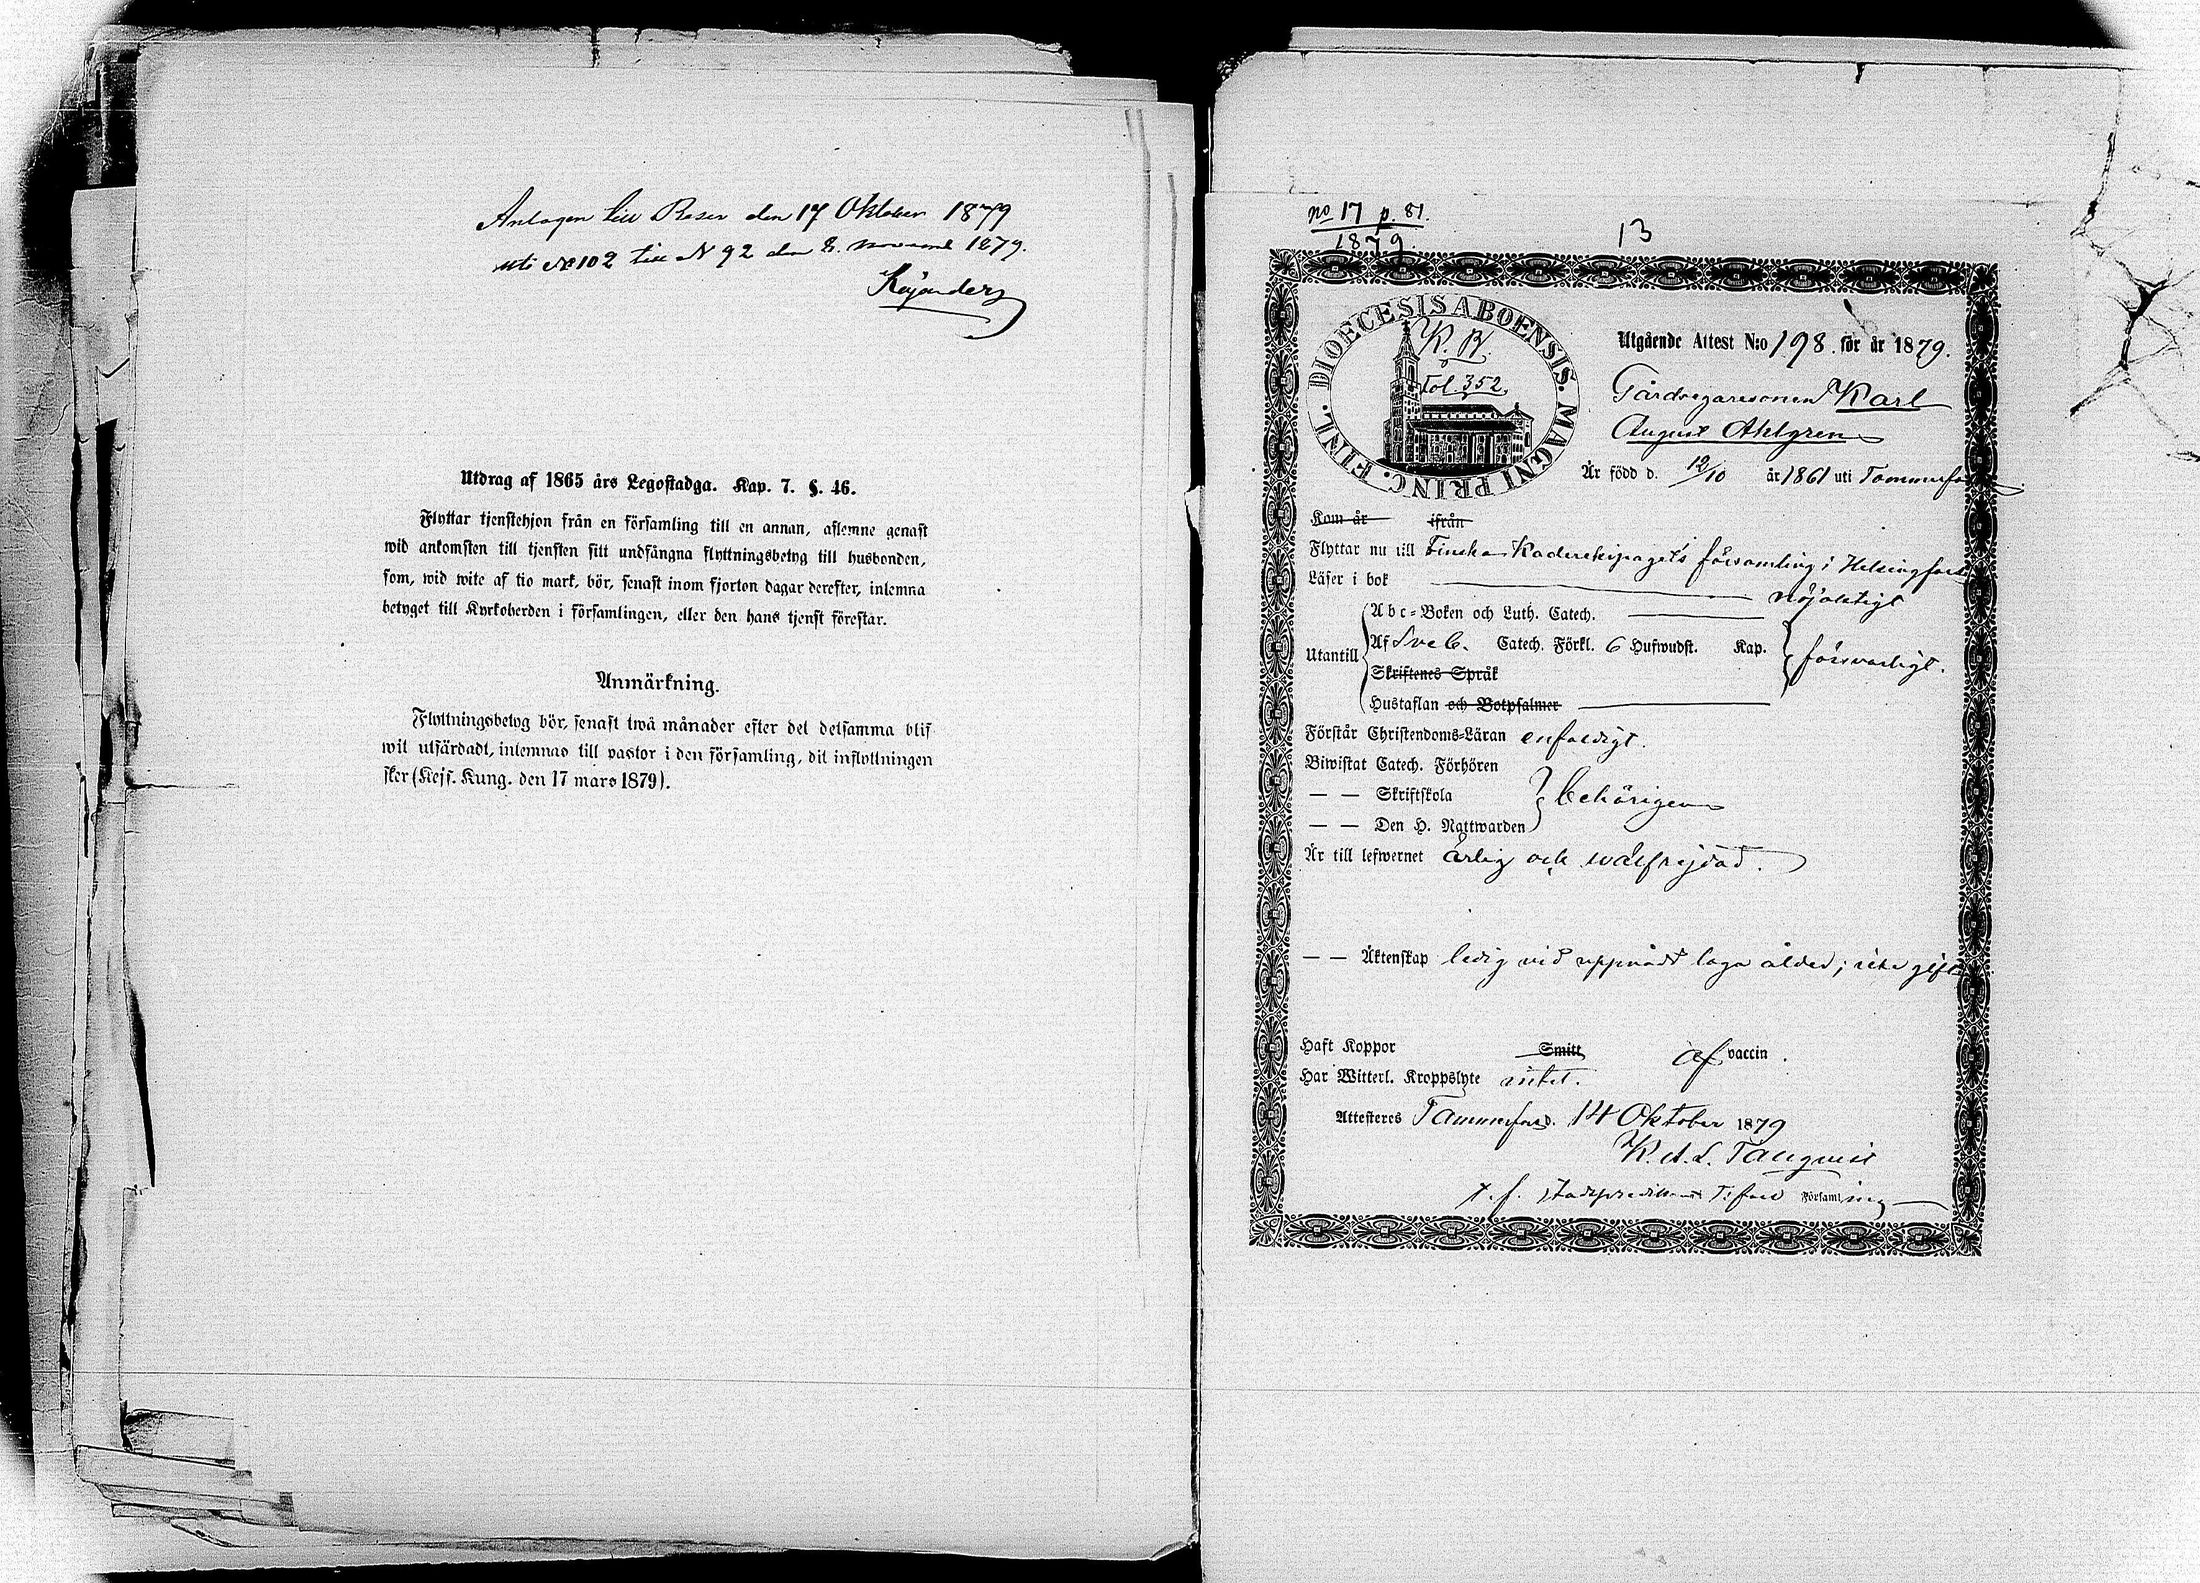 Antagen till Reserv den 17 Oktober 1879
uti № 102 till N 92 den 8. november 1879.
Kajanders
Utdrag af 1865 års Legostadga. Kap. 7. §. 46.
Flyttar tjenstehjon från en församling till en annan, aflemne genast
wid ankomsten till tjensten sitt undfångna flyttningsbetyg till husbonden,
som, wid wite af tio mark, bör, senast inom fjorton dagar derefter, inlemna
betyget till Kyrkoherden i församlingen, eller den hans tjenst förestår.
Anmärkning.
Flyttningsbetyg bör, senast twå månader efter det detsamma blif
wit utfärdadt, inlemnas till pastor i den församling, dit inflyttningen
sker (Kejs. Kung. den 17 mars 1879).
no 17 p. 81.
1879.
13
DIOECESIS ABOENSIS. MAGNI PRINC. FINL.
K. B.
Fol. 352.
Utgående Attest N:o 198. för år 1879.
Gårdsegaresonen Karl
August Ahlgren
Är född d. 12/10 år 1861 uti Tammerfors
Kom år ifrån
Flyttar nu till Finska Kadettskipagets församling i Helsingfors
Läser i bok nöjaktigt
Utantill
Abc-Boken och Luth. Catech.
Af Sveb. Catech. Förkl. 6 Hufwudst. Kap. försvarligt.
Skriftenes Språk
Hustaflan och Botpsalmer
Förstår Christendoms-Läran enfaldigt.
Biwistat Catech. Förhören
— — Skriftskola behörigen
— — Den H. Nattwarden
Är till lefwernet ärlig och wälfrejdad.
— — Äktenskap ledig vid uppnådd laga ålder; icke gift
Haft Koppor Smitt af vaccin.
Har Witterl. Kroppslyte intet.
Attesteres Tammerfors. 14 Oktober 1879
K. A. L. Tallqvist
t. f. stadspredikant T:fors Församling